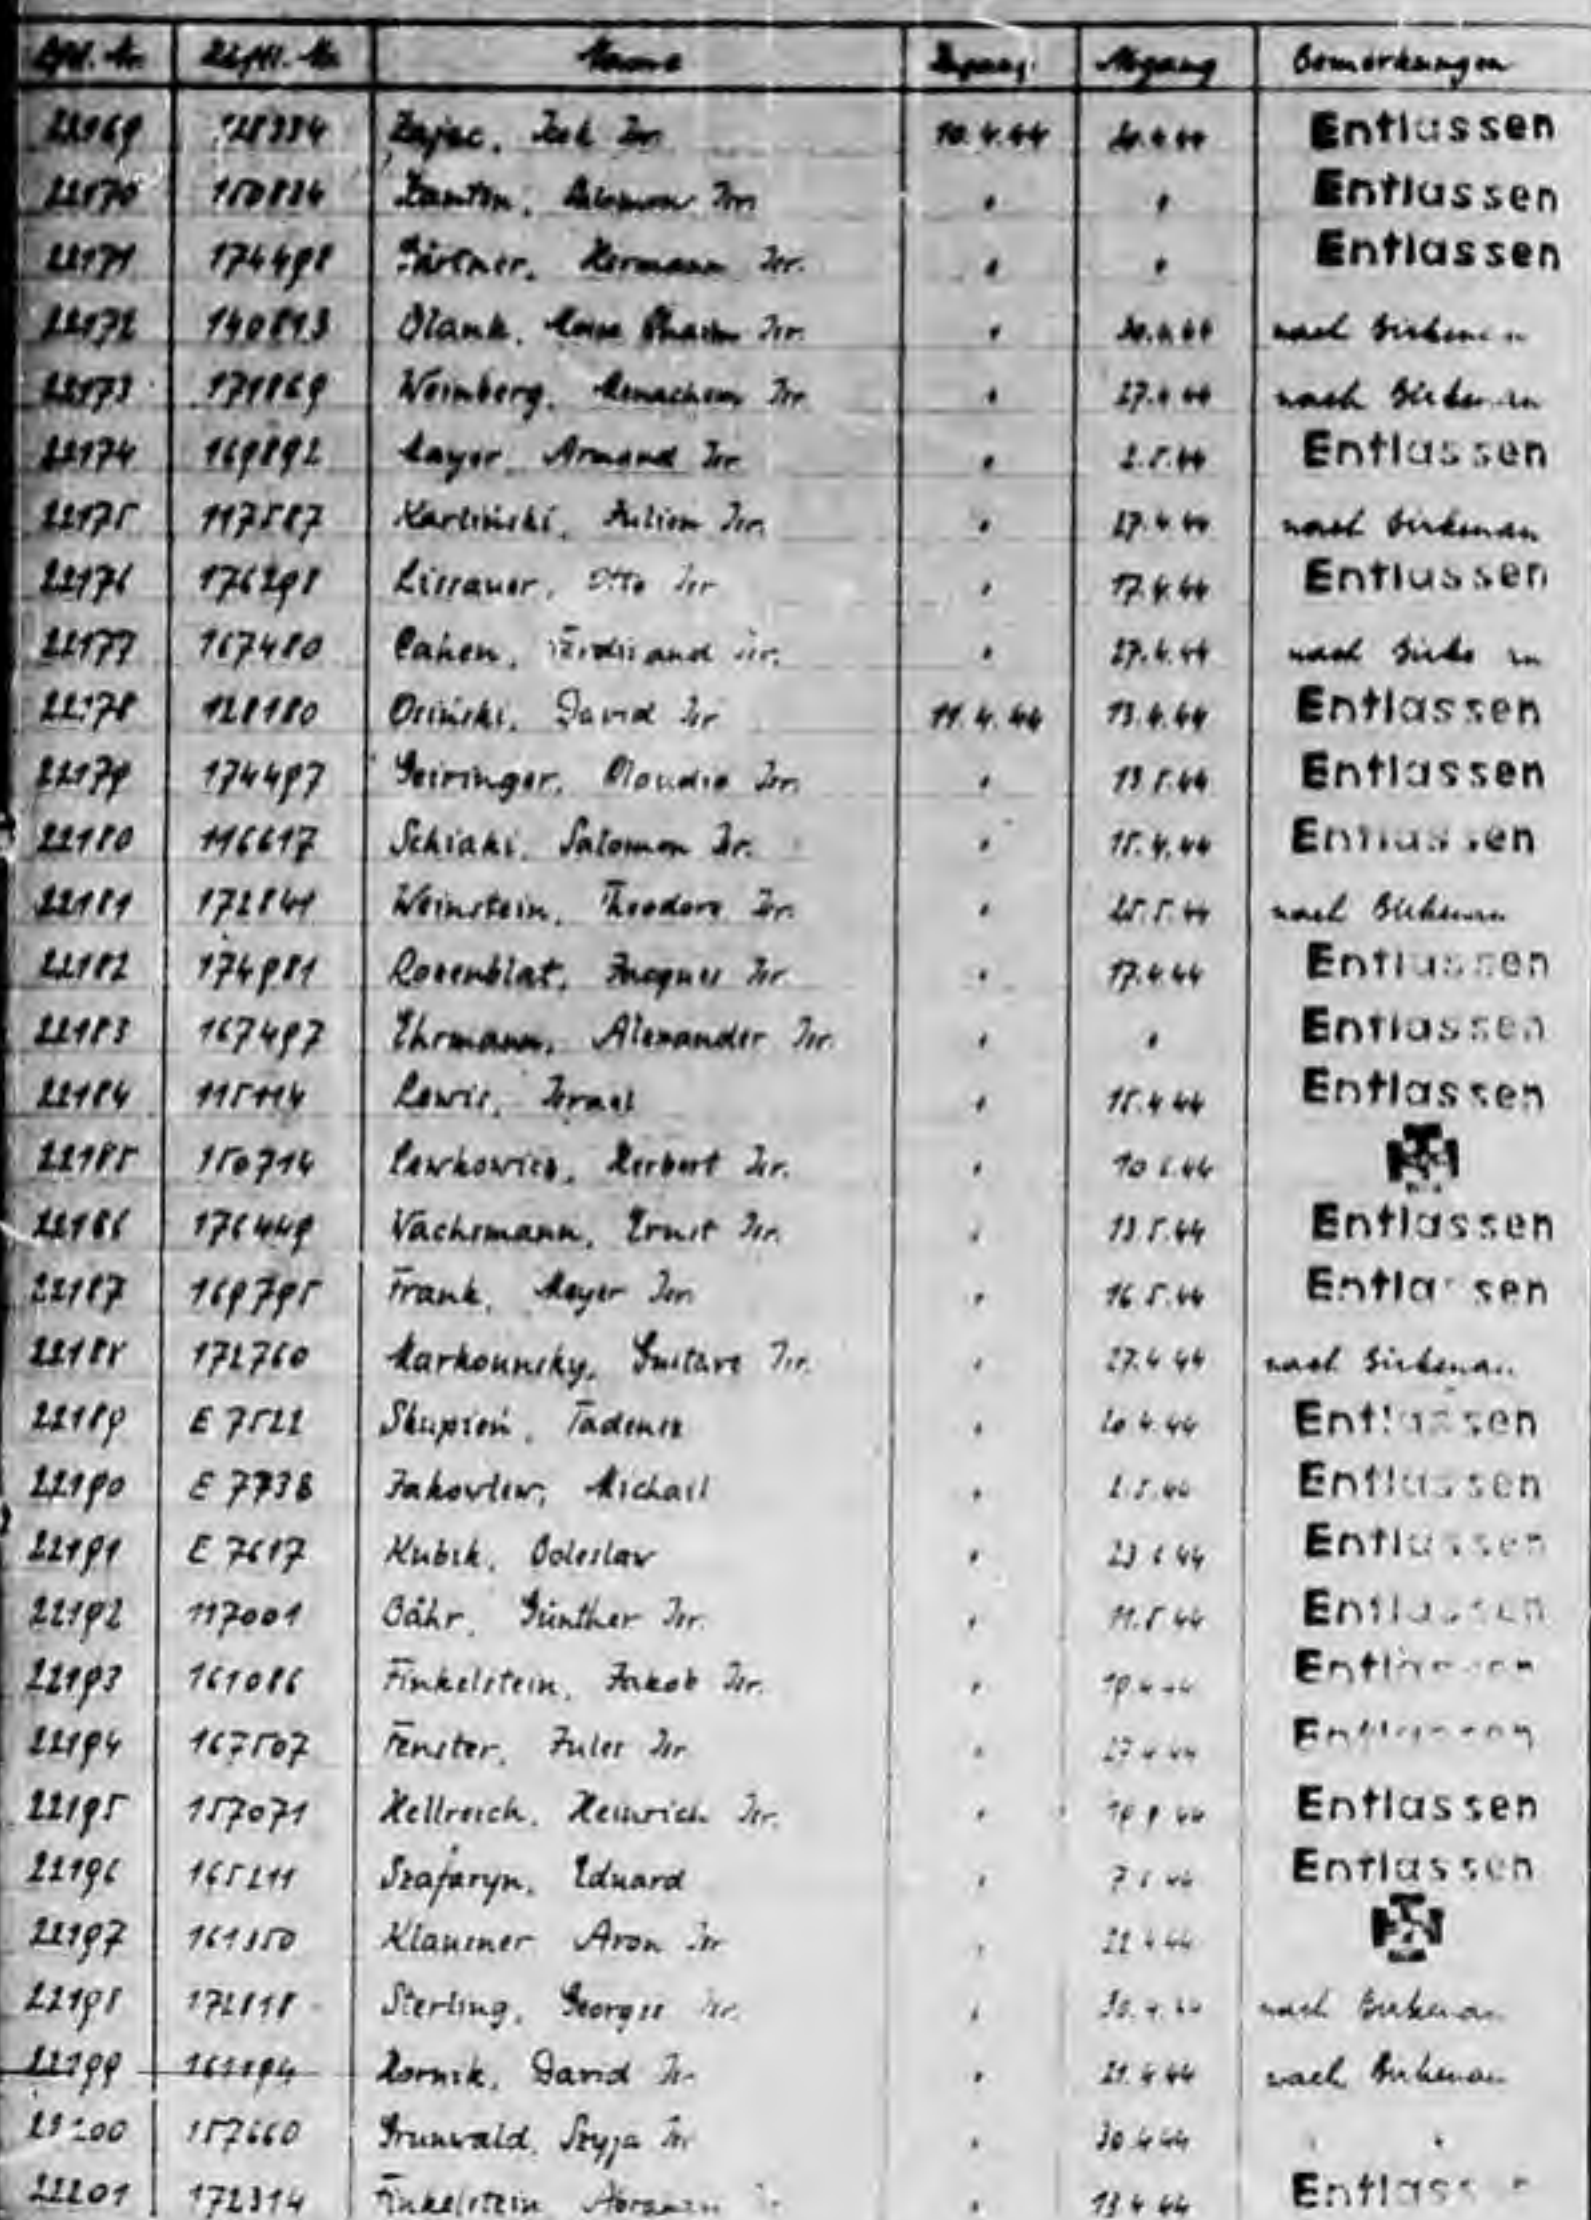 Lfd. Nr. Häftl. Nr. Name Zugang Abgang Bemerkungen
22169 128334 Zajac, Icek Isr. 10.4.44 20.4.44 Entlassen
22170 150834 Salomon Isr. " " Entlassen
22171 174498 Gärtner, Hermann Isr. " " Entlassen
22172 140813 Blank, Isr. " 30.4.44 nach Birkenau
22173 171869 Weinberg, Menachem Isr. " 27.4.44 nach Birkenau
22174 169892 Mayer, Armand Isr. " 2.5.44 Entlassen
22175 117587 Karliński, Julien Isr. " 27.4.44 nach Birkenau
22176 176298 Lissauer, Otto Isr. " 17.4.44 Entlassen
22177 167480 Cahen, Ferdinand Isr. " 27.4.44 nach Birkenau
22178 128180 Osiński, David Isr. 11.4.44 13.4.44 Entlassen
22179 174497 Geiringer, Claudio Isr. " 13.5.44 Entlassen
22180 116617 Schiaki, Salomon Isr. " 15.4.44 Entlassen
22181 172841 Weinstein, Theodore Isr. " 25.5.44 nach Birkenau
22182 174981 Rosenblat, Jacques Isr. " 17.4.44 Entlassen
22183 167497 Ehrmann, Alexander Isr. " " Entlassen
22184 115114 Lewis, Israel " 15.4.44 Entlassen
22185 150714 Lewkowicz, Herbert Isr. "
22186 176449 Wachsmann, Ernst Isr. " 13.5.44 Entlassen
22187 169795 Frank, Meyer Isr. " 16.5.44 Entlassen
22188 172760 Markounsky, Gustave Isr. " 27.4.44 nach Birkenau
22189 E 7522 Skupień, Tadeusz " 20.4.44 Entlassen
22190 E 7738 Jakowlew, Michail " 2.5.44 Entlassen
22191 E 7617 Kubik, Boleslaw " Entlassen
22192 117001 Bähr, Günther Isr. " 11.5.44 Entlassen
22193 161086 Finkelstein, Jakob Isr. " 19.4.44 Entlassen
22194 167507 Fenster, Jules Isr. " 27.4.44 Entlassen
22195 157071 Hellreich, Heinrich Isr. " Entlassen
22196 165211 Szafaryn, Eduard " Entlassen
22197 161350 Klausner Aron Isr. " 22.4.44
22198 172818 Sterling, Georges Isr. " 30.4.44 nach Birkenau
22199 161194 Hornik, David Isr. " 21.4.44 nach Birkenau
22200 157660 Grunwald, Szyja Isr. " 30.4.44 " "
22201 172314 Finkelstein " 13.4.44 Entlassen